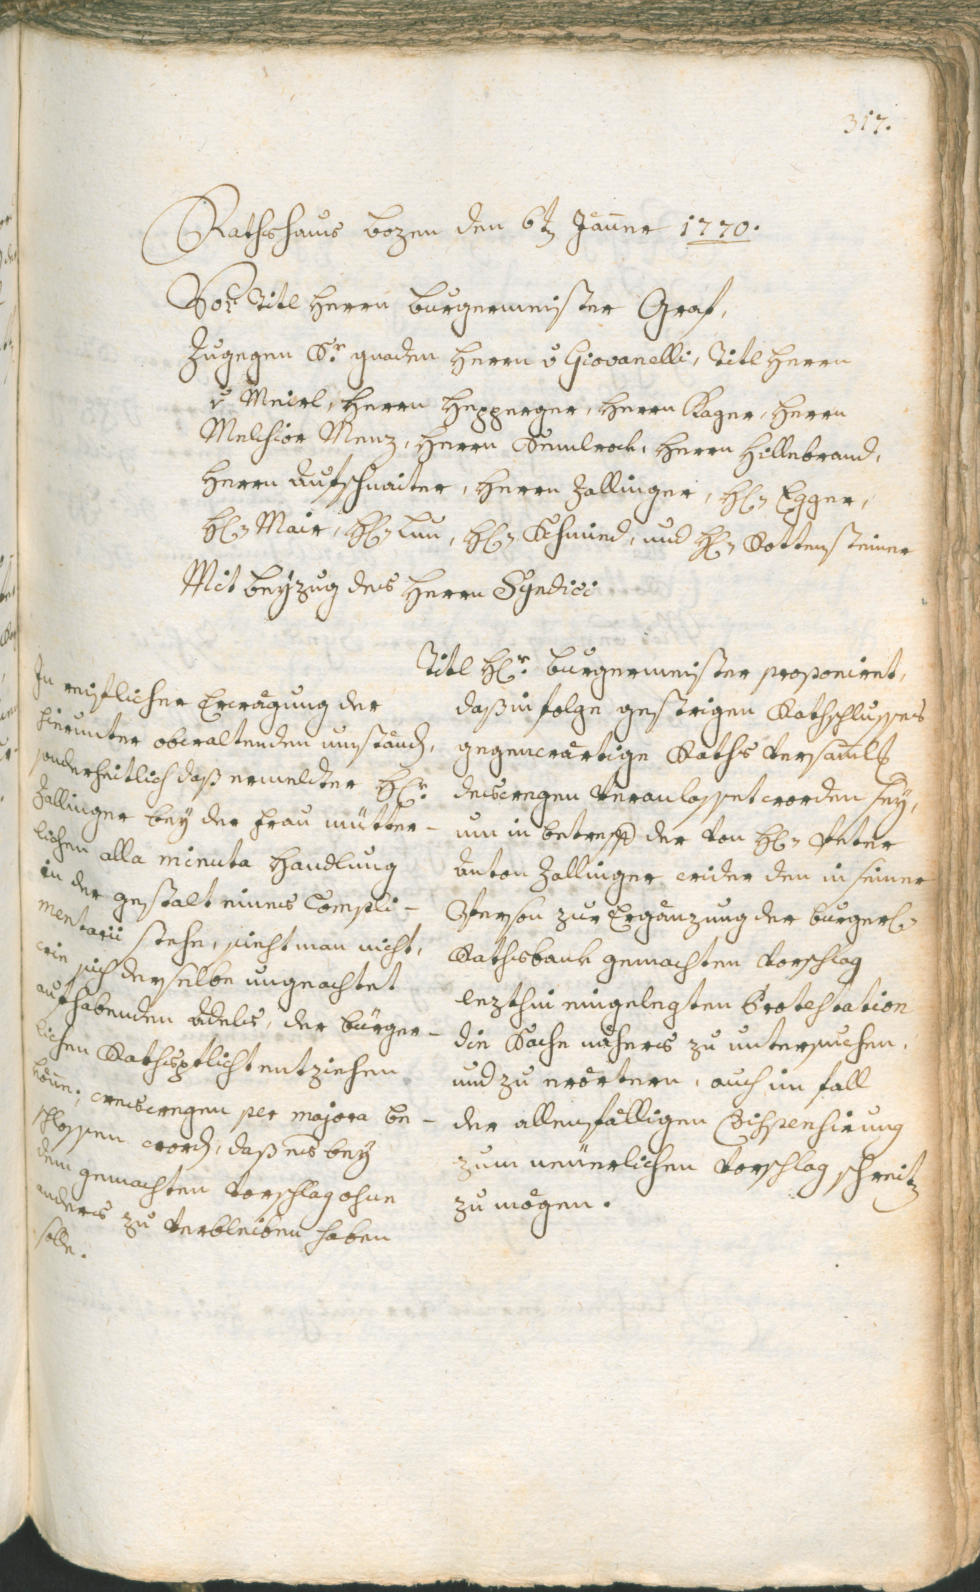 317.
Rathshaus Bozen den 6t Jäner 1770.
Vor Titl Herrn Burgermeister Graf,
Zugegen Sr. gnaden Herrn v Giovanelli, Titl Herrn
v Meirl, Herrn Hepperger, Herrn Rager, Herrn
Melchior Menz, Herrn Remlrock, Herrn Hillebrand,
Herrn Aufschnaiter, Herrn Zallinger, H: Egger,
H: Mair, H: Lun, H: Schmied, und H: Rottensteiner
Mit beyzug des Herrn Syndici
Titl Hr. Burgermeister proponiret,
daß in folge gestrigen Rathschlusses
gegenwärtige Raths Versaml
deswegen Veranlasset worden sey,
um in betreff der Von H: Peter
Anton Zallinger wider den in seiner
Person zur Ergänzung der burgerl:
Rathsbank gemachten Vorschlag
lezthin eingelegten Protestation
die Sache näheres zu untersuchen,
und zu erörtern, auch im fall
der allenfälligen Dispensirung
zum neüerlichen Vorschlag schreit
zu mögen.
In reiflicher Erwägung der
hierunter obwaltenden umständ,
sonderheitlich daß ermeldter Hr.
Zallinger bey der frau mütter-
lichen alla minuta Handlung
in der gestalt eines Compli-
mentarii stehe, sieht man nicht,
wie sich derselbe ungeachtet
aufhabenden Adels, der bürger-
lichen Rathspflicht entziehen
köne; weswegen per majora be-
schlossen word, daß es bey
dem gemachten Vorschlag ohne
anders zu Verbleiben haben
solle.